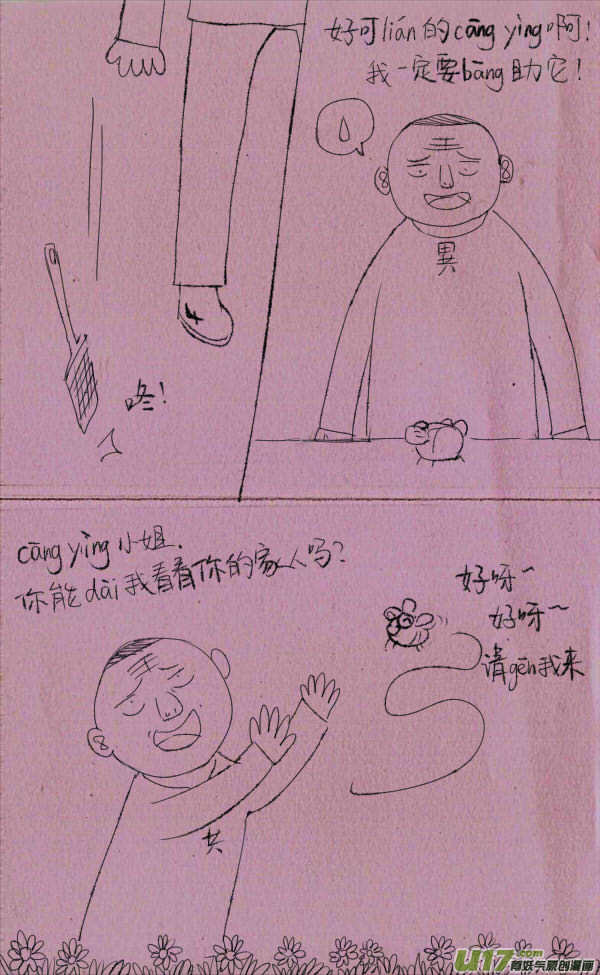 好可lián的cāng yìng啊!
我一定要bāng助它!
異
咚!
cāng yìng小姐.
你能dài我看看你的家人吗?
好呀~
好呀~
请gēn我来
共
U17.com
有妖气原创漫画